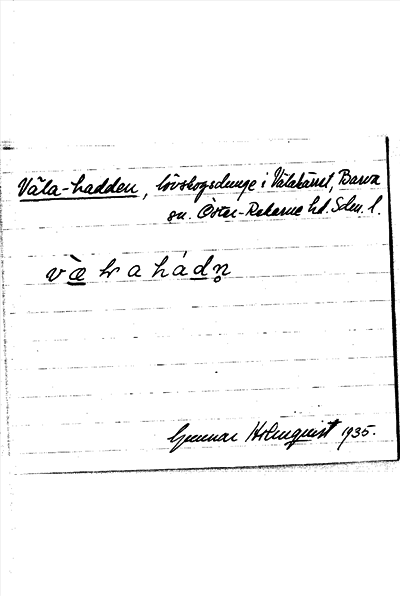 Väla-hadden, lövskogsdunge i Välakärret, Barva
sn. Öster-Rekarne hd. Sdm. l.
v æ̀ ɫ a h á d n̥
Gunnar Holmquist 1935.